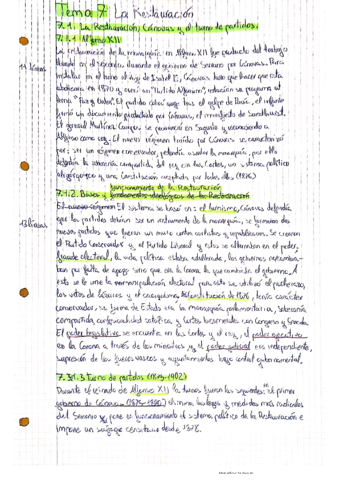 Tema 7: La Restauración
7.1. La Restauración; Cánovas y el turno de partidos.
7.1.1 Alfonso XII
La restauración de la monarquía en Alfonso XII fue producto del trabajo
llevado en el exterior durante el gobierno de Serrano por Cánovas. Para
instalar en el trono al hijo de Isabel II, Cánovas tuvo que hacer que esta
abdicara en 1870 y creó un "Partido Alfonsino", redactó un programa el
lema "Paz y Orden". El partido cobró auge tras el golpe de Pavía, el infante
firmó un documento redactado por Cánovas, el manifiesto de Sandhurst.
El general Martínez Campos se pronunció en Sagunto y reconociendo a
Alfonso como rey. El nuevo régimen traído por Cánovas se caracterizó
por: ser un régimen conservador, pretendía ayudar a la monarquía, por ello
defendía la soberanía compartida del rey con las Cortes, un sistema político
oligárquico y una Constitución respetada por todos ellos. (1876)
funcionamiento de la Restauración
7.1.2. Bases y fundamentos ideológicos de la Restauración
El nuevo régimen El sistema se basó en el turnismo, Cánovas defendía
que los partidos debían ser un instrumento de la monarquía, se formaron dos
nuevos partidos que fueron un mixto entre carlistas y republicanos. Se crearon
el Partido Conservador y el Partido Liberal y ellos se alternaban en el poder,
fraude electoral, la vida política estaba adulterada, los gobiernos cambia-
ban por falta de apoyo sino que era la Corona la que cambiaba el gobierno. A
esto se le une la manipulación electoral para esto se utilizó el pucherazo,
los votos de lázaros y el caciquismo. La constitución de 1876, tenía carácter
conservador, su forma de Estado era la monarquía parlamentaria, soberanía
compartida, confesionalidad católica, y cortes bicamerales con Congreso y Senado.
El poder legislativo se encuentra en las Cortes y el rey, el poder ejecutivo
en la Corona a través de los ministros y el poder judicial era independiente,
supresión de los fueros vascos y ayuntamientos bajo control gubernamental.
7.1.3 Turno de partidos (1875-1902)
Durante el reinado de Alfonso XII los turnos fueron los siguientes: el primer
gobierno de Cánovas (1875-1880) eliminó las leyes y medidas más radicales
del Sexenio y pone en funcionamiento el sistema político de la Restauración e
impone un sufragio censitario desde 1878.